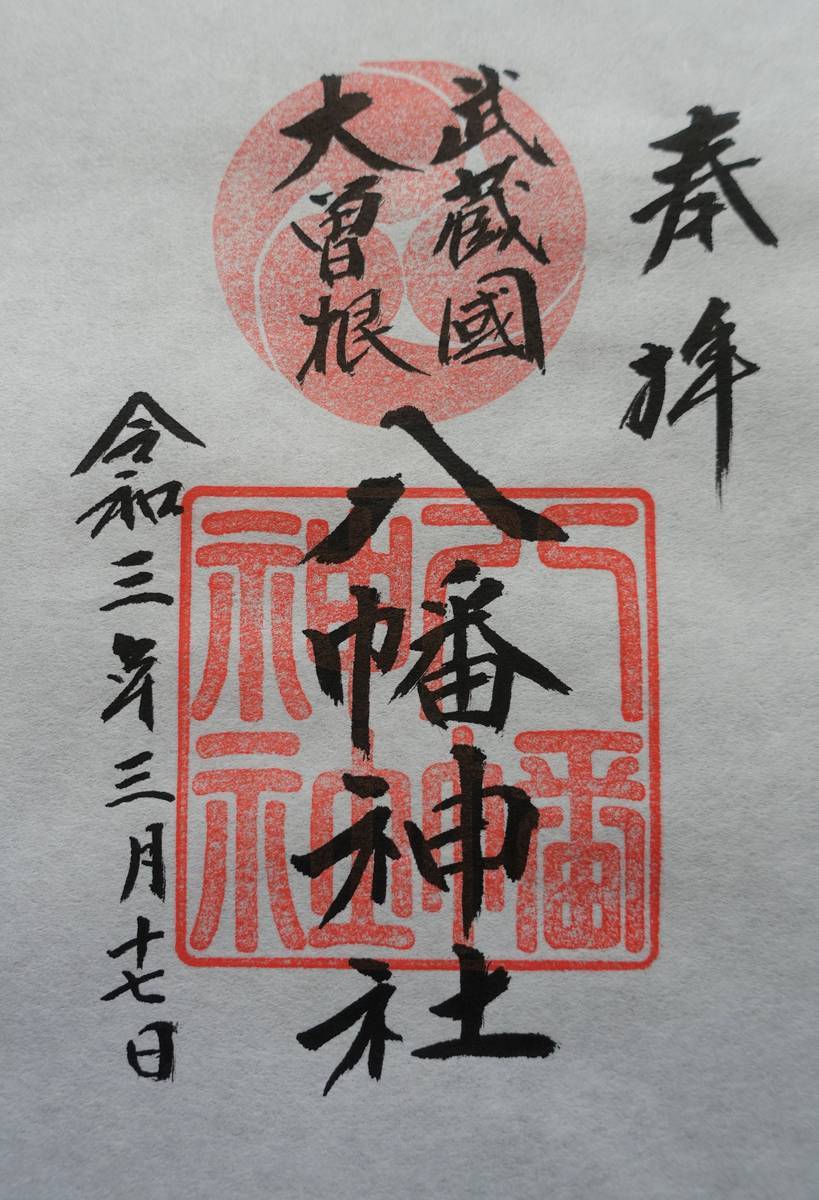 奉拝
武蔵國
大曽根
八幡神社
八幡神社
令和三年三月十七日